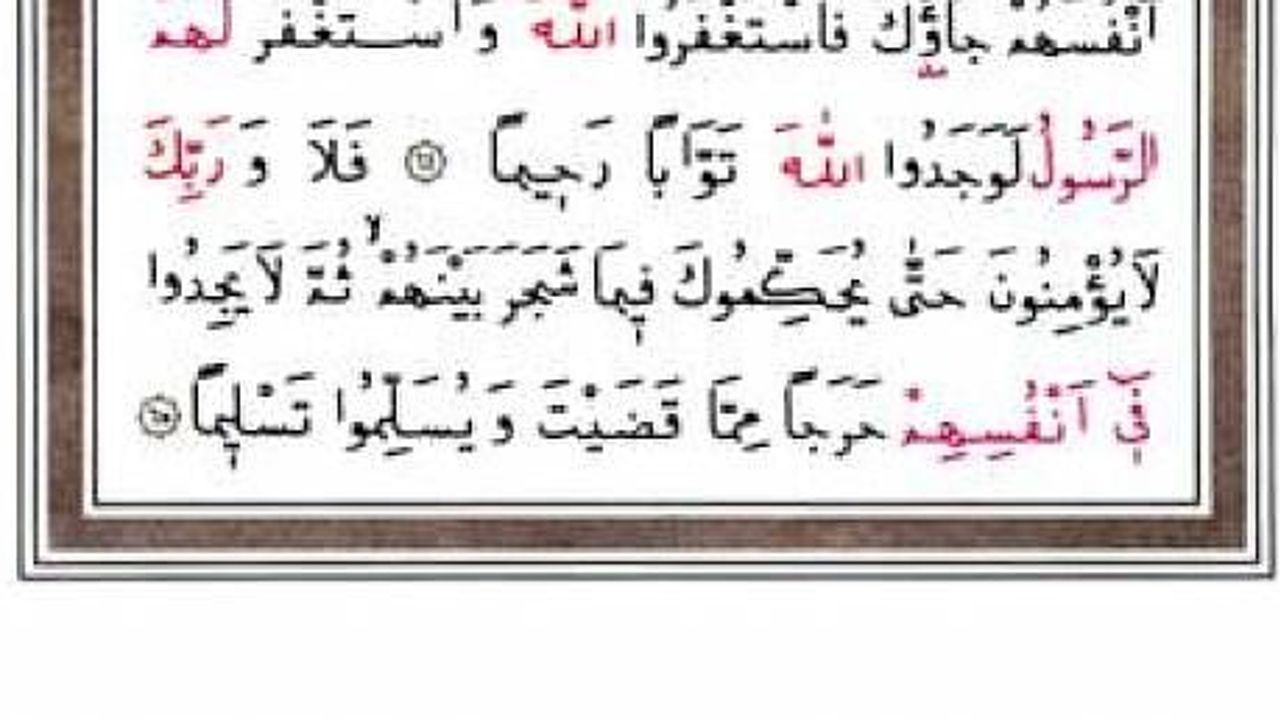 اَنْفُسَهُمْ جَاؤُكَ فَاسْتَغْفَرُوا اللّٰهَ وَاسْتَغْفَرَ لَهُمُ
الرَّسُولُ لَوَجَدُوا اللّٰهَ تَوَّاباً رَحِيماً ﴿٦٤﴾ فَلاَ وَرَبِّكَ
لاَ يُؤْمِنُونَ حَتّٰى يُحَكِّمُوكَ فِيمَا شَجَرَ بَيْنَهُمْ ۙ ثُمَّ لاَ يَجِدُوا
فِٓي اَنْفُسِهِمْ حَرَجاً مِمَّا قَضَيْتَ وَيُسَلِّمُوا تَسْلِيماً ﴿٦٥﴾